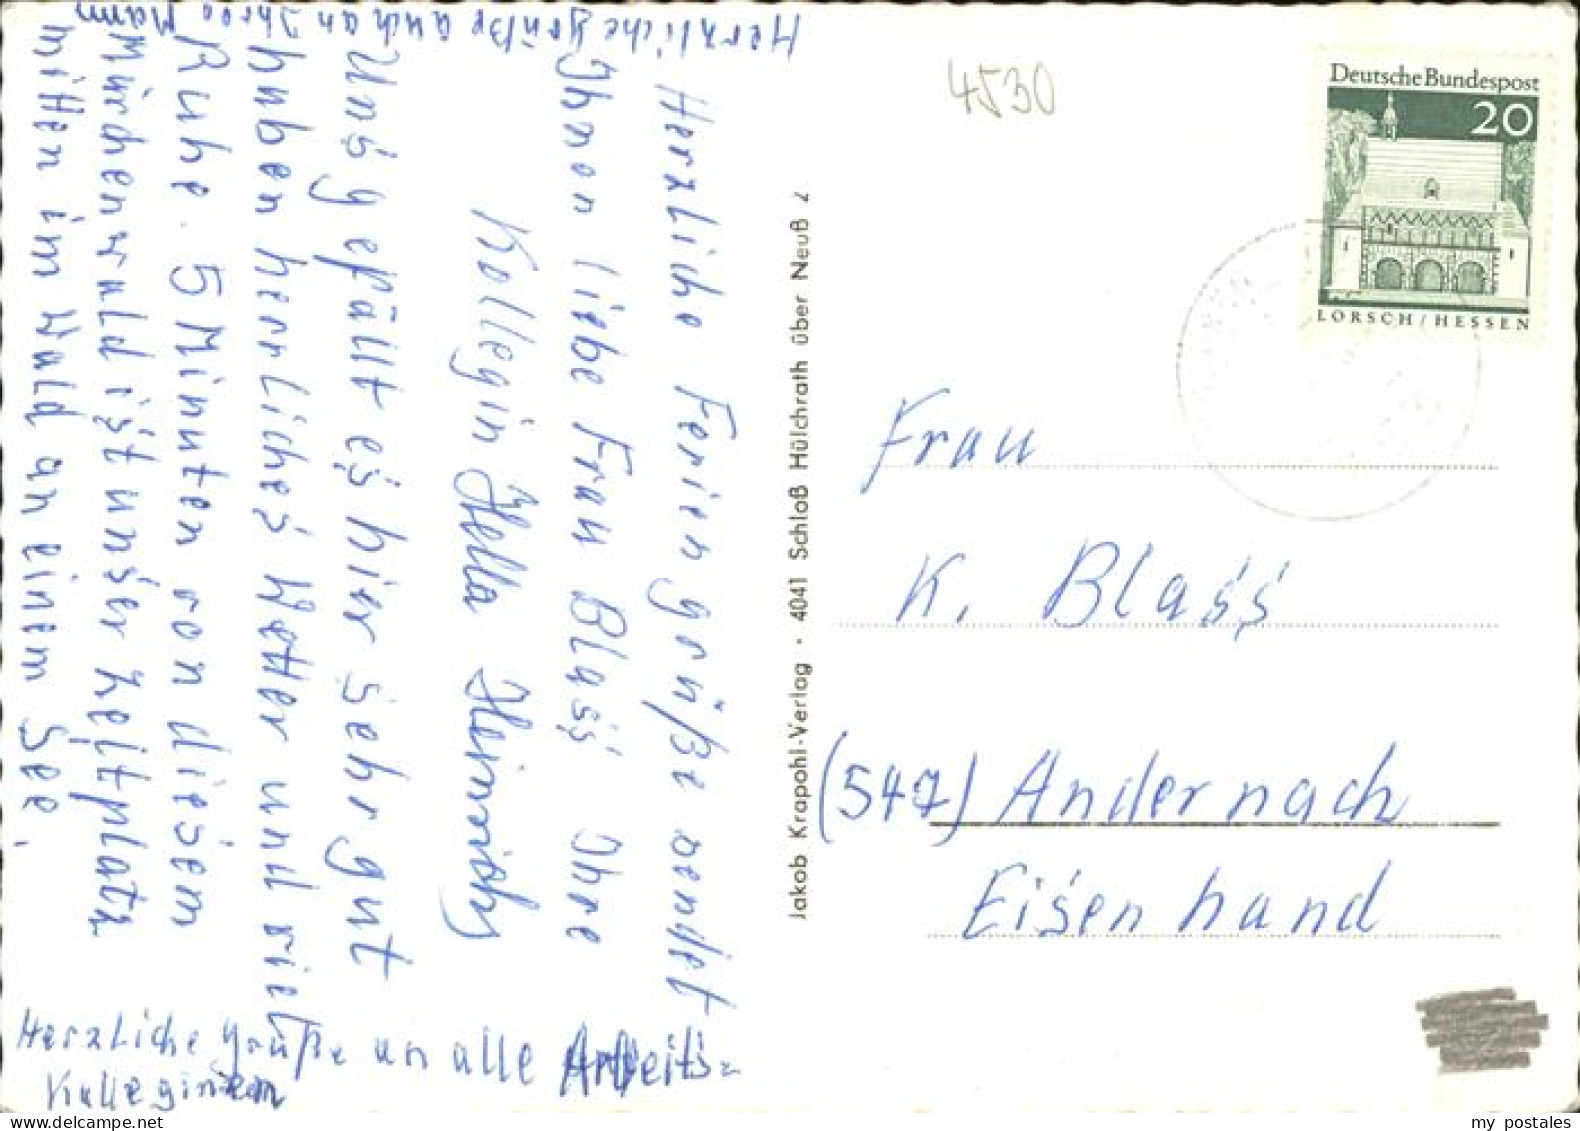 Herzliche Grüße auch an Ihren Mann
Herzliche Feriengrüße sendet
Ihnen liebe Frau Blass Ihre
Kollegin Hella Heinrichs
Uns gefällt es hier sehr gut
haben herrliches Wetter und viel
Ruhe. 5 Minuten von diesem
Märchenwald ist unser Zeltplatz
mitten im Wald an einem See.
Herzliche Grüße an alle Arbeits=
Kolleginnen
Jakob Krapohl-Verlag · 4041 Schloß Hülchrath über Neuß 2
4530
Deutsche Bundespost
20
LORSCH/HESSEN
Frau
K. Blass
(547) Andernach
Eisenhand
my postales